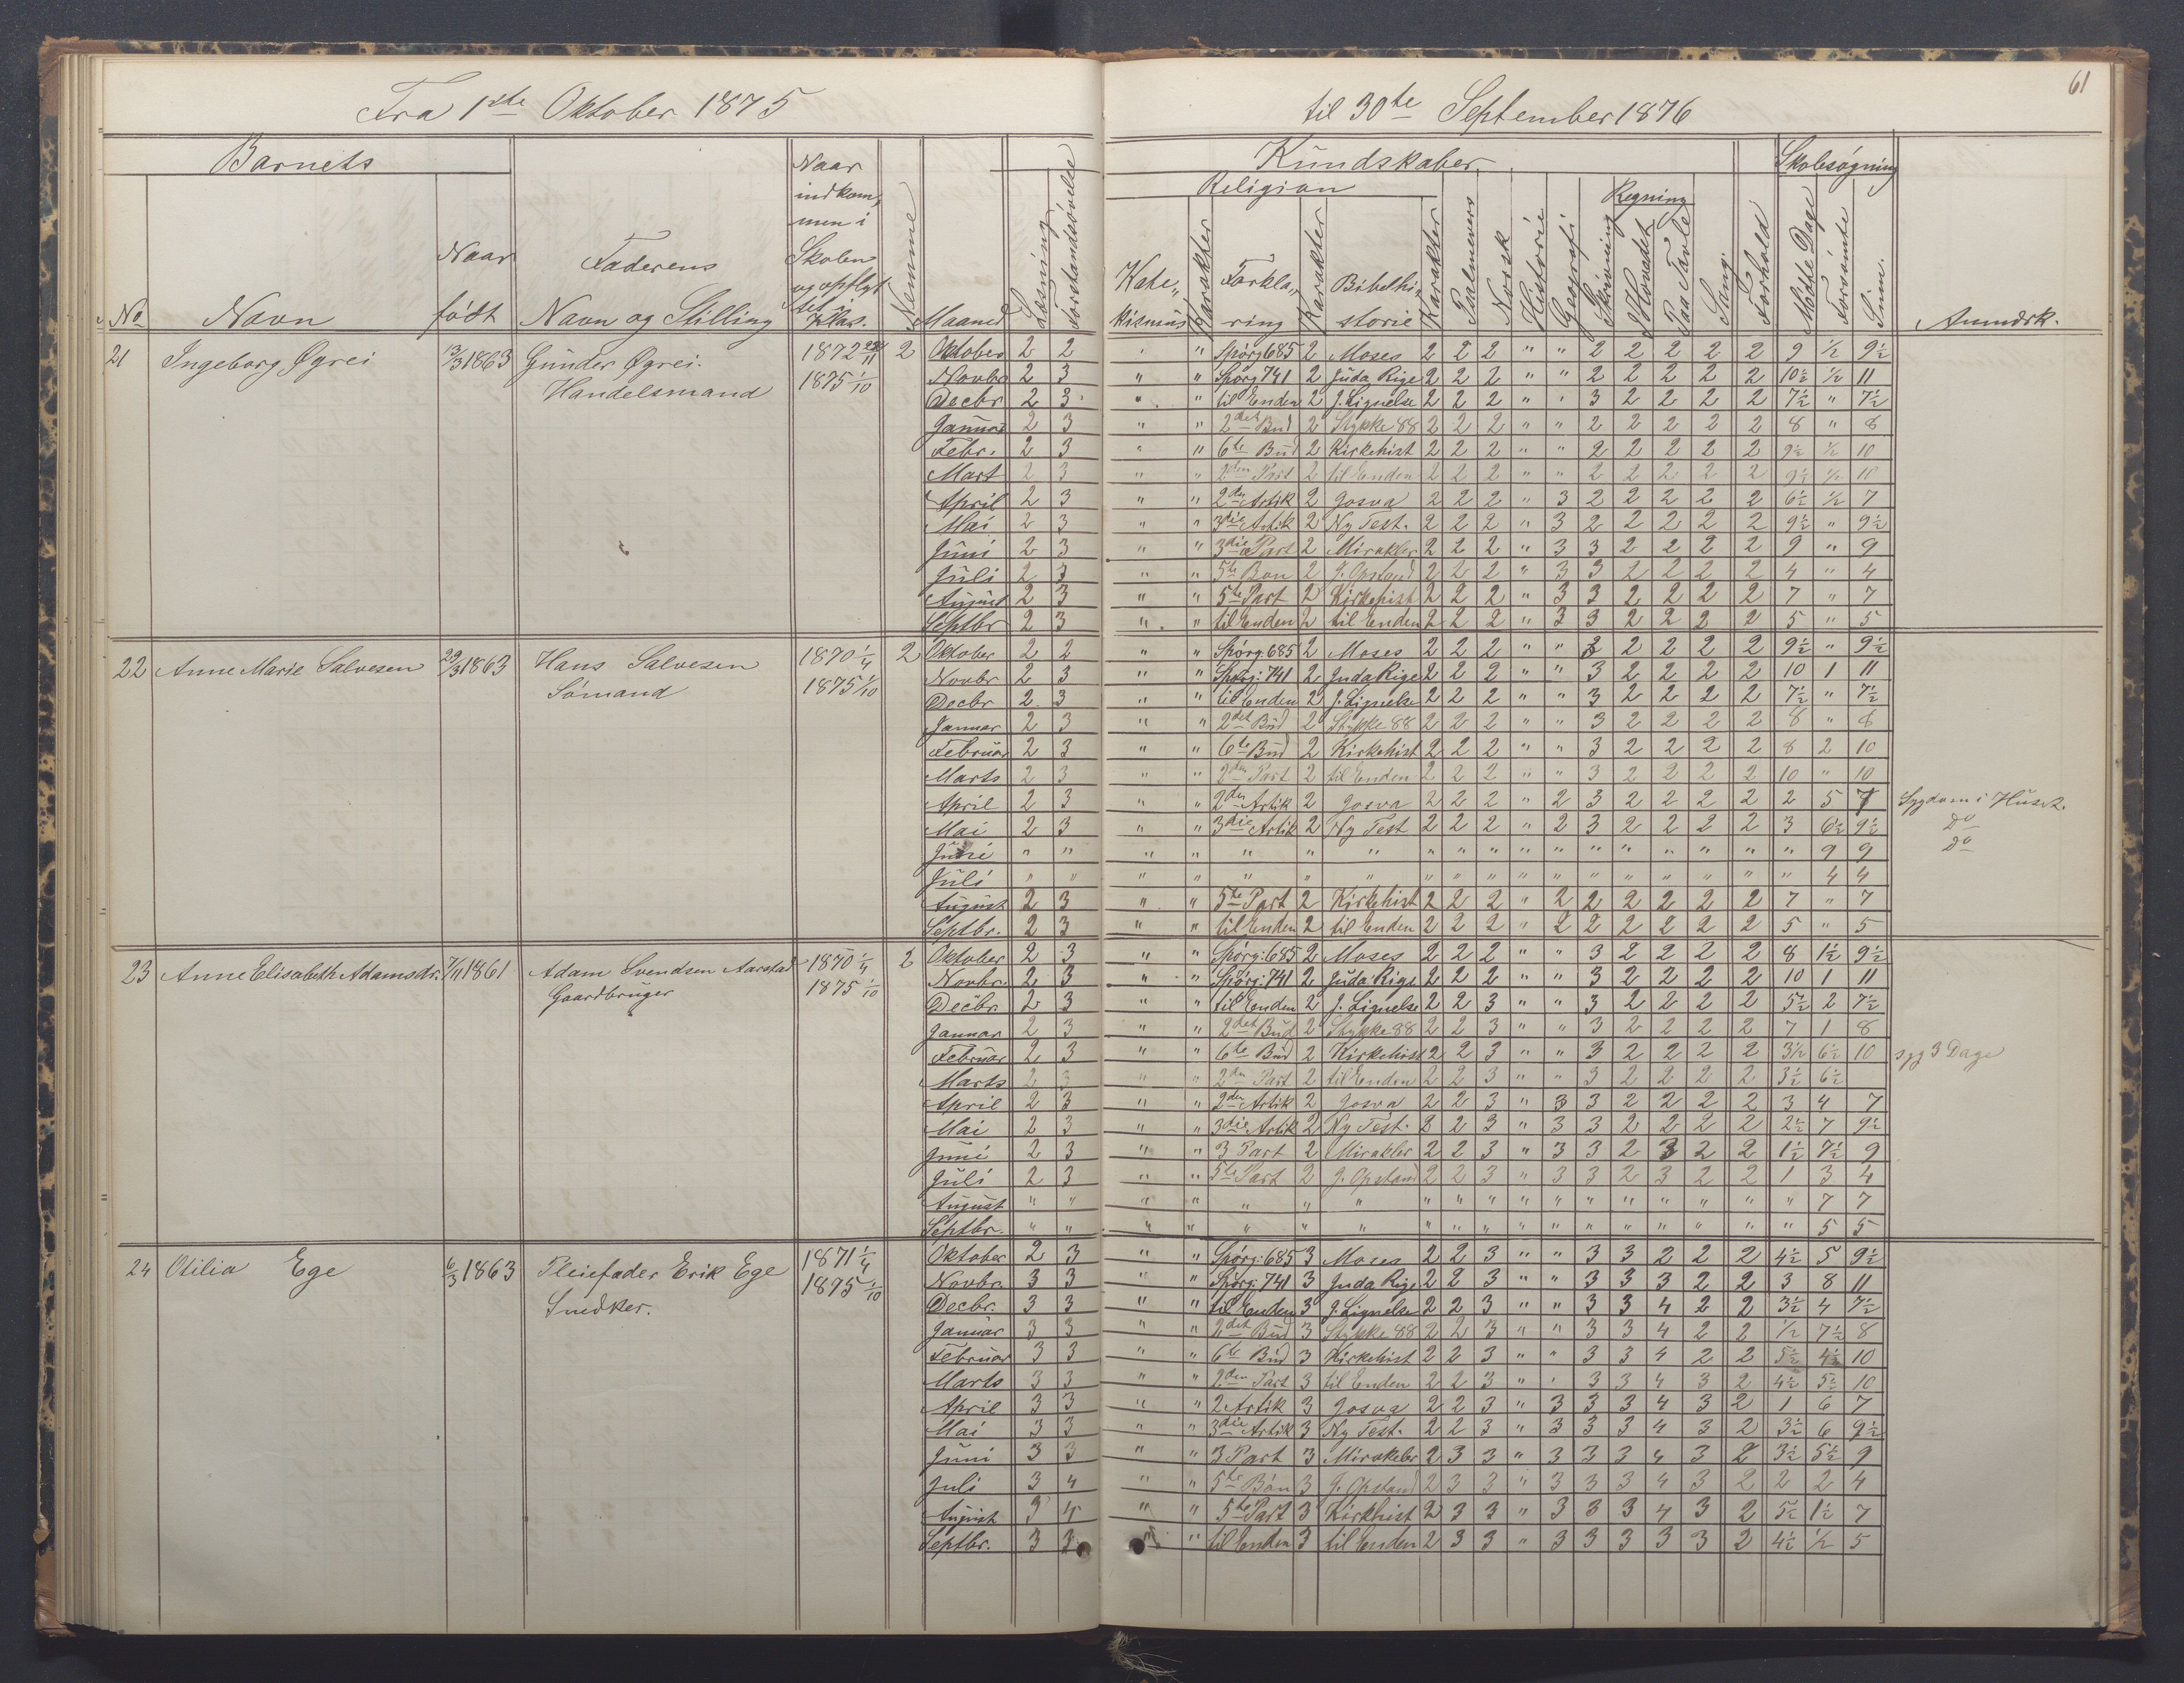 61
Fra 1ste Oktober 1875 til 30te September 1876
Barnets Kundskaber Skolesøgning
Religion Regning
No Navn Naar født Faderens Navn og Stilling Naar indkommen i Skolen og opflyttet i Klas. Nemme Maaned Læsning Forstandsøvelse Katekismus Karakter Forklaring Karakter Bibelhistorie Karakter Psalmevers Norsk Historie Geografi Skrivning I Hovedet Paa Tavle Sang Forhold Mødte Dage Forsømte Sum. Anmærk.
21 Ingeborg Øgrei 13/3 1863 Gunder Øgrei. 1872 11 2 Oktober 2 2 " Spørg 685 2 Moses 2 2 2 " " 2 2 2 2 2 9 ½ 9½
Handelsmand 1875 1/10 Novbr 2 3 " " Spørg 741 2 Juda Rige 2 2 2 " " 2 2 2 2 2 10½ ½ 11
Decbr 2 3 " " til Enden 2 J. Lignelse 2 2 2 " " 3 2 2 2 2 7½ " 7½
Januar 2 3 " " 2det Bud 2 Stykke 88 2 2 2 " " 2 2 2 2 2 8 " 8
Febr. 2 3 " " 6te Bud 2 Kirkehist 2 2 2 " " 2 2 2 2 2 9½ ½ 10
Mart 2 3 " " 2den Part 2 til Enden 2 2 2 " " 2 2 2 2 2 9½ ½ 10
April 2 3 " " 2den Artik 2 Josva 2 2 2 " 3 2 2 2 2 2 6½ ½ 7
Mai 2 3 " " 3die Artik 2 Ny Test. 2 2 2 " 3 2 2 2 2 2 9½ " 9½
Juni 2 3 " " 3die Part 2 Mirakler 2 2 2 " 3 3 2 2 2 2 9 " 9
Juli 2 3 " " 5te Bøn 2 J. Opstand 2 2 2 " 3 3 2 2 2 2 4 " 4
August 2 3 " " 5te Part 2 Kirkehist 2 2 2 " 3 3 2 2 2 2 7 " 7
Septbr 2 3 " " til Enden 2 til Enden 2 2 2 " 3 3 2 2 2 2 5 " 5
22 Anne Marie Salvesen 29/3 1863 Hans Salvesen 1870 1/4 2 Oktober 2 2 " " Spørg. 685 2 Moses 2 2 2 " " 3 2 2 2 2 9½ " 9½
Sømand 1875 1/10 Novbr 2 3 " " Spørg. 741 2 Juda Rige 2 2 2 " " 3 2 2 2 2 10 1 11
Decbr 2 3 " " til Enden 2 J. Lignelse 2 2 2 " " 3 2 2 2 2 7½ " 7½
Januar 2 3 " " 2det Bud 2 Stykke 88 2 2 2 " " 3 2 2 2 2 8 " 8
Februar 2 3 " " 6te Bud 2 Kirkehist 2 2 2 " " 3 2 2 2 2 8 2 10
Marts 2 3 " " 2den Part 2 til Enden 2 2 2 " " 3 2 2 2 2 10 " 10
April 2 3 " " 2den Artik 2 Josva 2 2 2 " 2 3 2 2 2 2 2 5 7 Sygdom i Huset.
Mai 2 3 " " 3die Artik 2 Ny Test 2 2 2 " 2 3 2 2 2 2 3 6½ 9½ Do
Juni " " " " " " " " " " " " " " " " " " " 9 9 Do
Juli " " " " " " " " " " " " " " " " " " " 4 4
August 2 3 " " 5te Part 2 Kirkehist 2 2 2 " 2 2 2 2 2 2 7 " 7
Septbr. 2 3 " " til Enden 2 til Enden 2 2 2 " 2 2 2 2 2 2 5 " 5
23 Anne Elisabeth Adamsdr. 7/11 1861 Adam Svendsen Aarstad 1870 1/4 2 Oktober 2 3 " " Spørg: 685 2 Moses 2 2 2 " " 3 2 2 2 2 8 1½ 9½
Gaardbruger 1875 1/10 Novbr. 2 3 " " Spørg: 741 2 Juda Rige 2 2 2 " " 3 2 2 2 2 10 1 11
Decbr. 2 3 " " til Enden 2 J. Lignelse 2 2 3 " " 3 2 2 2 2 5½ 2 7½
Januar 2 3 " " 2det Bud 2 Stykke 88 2 2 3 " " 3 2 2 2 2 7 1 8
Februar 2 3 " " 6te Bud 2 Kirkehist 2 2 3 " " 3 2 2 2 2 3½ 6½ 10 syg 3 Dage
Marts 2 3 " " 2den Part 2 til Enden 2 2 3 " " 3 2 2 2 2 3½ 6½
April 2 3 " " 2den Artik 2 Josva 2 2 3 " 3 3 2 2 2 2 3 4 7
Mai 2 3 " " 3die Artik 2 Ny Test. 2 2 3 " 3 3 2 2 2 2 2½ 7 9½
Juni 2 3 " " 3 Part 2 Mirakler 2 2 3 " 3 3 2 3 2 2 1½ 7½ 9
Juli 2 3 " " 5te Part 2 J. Opstand 2 2 3 " 3 3 2 3 2 2 1 3 4
August " " " " " " " " " " " " " " " " " " " 7 7
Septbr. " " " " " " " " " " " " " " " " " " " 5 5
24 Otilia Ege 6/3 1863 Pleiefader Erik Ege 1871 1/4 Oktober 2 3 " " Spørg: 685 3 Moses 2 2 3 " " 3 3 2 2 2 4½ 5 9½
Snedker. 1875 1/10 Novbr. 3 3 " " Spørg: 741 3 Juda Rige 2 2 3 " " 3 3 3 2 2 3 8 11
Decbr. 3 3 " " til Enden 3 J. Lignelse 2 2 3 " " 3 3 4 2 2 3½ 4 7½
Januar 3 3 " " 2det Bud 3 Stykke 88 2 2 3 " " 3 3 4 2 2 ½ 7½ 8
Februar 3 3 " " 6te Bud 3 Kirkehist 2 2 3 " " 3 3 4 2 2 5½ 4½ 10
Marts 3 3 " " 2den Part 3 til Enden 2 2 3 " " 3 3 4 3 2 4½ 5½ 10
April 3 3 " " 2 Artik 3 Josva 2 2 3 " 3 3 3 4 3 2 1 6 7
Mai 3 3 " " 3die Artik 3 Ny Test. 2 2 3 " 3 3 3 4 3 2 3½ 6 9½
Juni 3 3 " " 3 Part 3 Mirakeler 2 3 3 " 3 3 3 4 3 2 3½ 5½ 9
Juli 3 4 " " 5te Bøn 3 J. Opstand 2 3 3 " 3 3 3 4 3 2 2 2 4
August 3 4 " " 5te Part 3 Kirkhist 2 3 3 " 3 3 3 4 3 2 5½ 1½ 7
Septbr. 3 3 " " til Enden 3 til Enden 2 3 3 " 3 3 3 3 3 2 4½ ½ 5